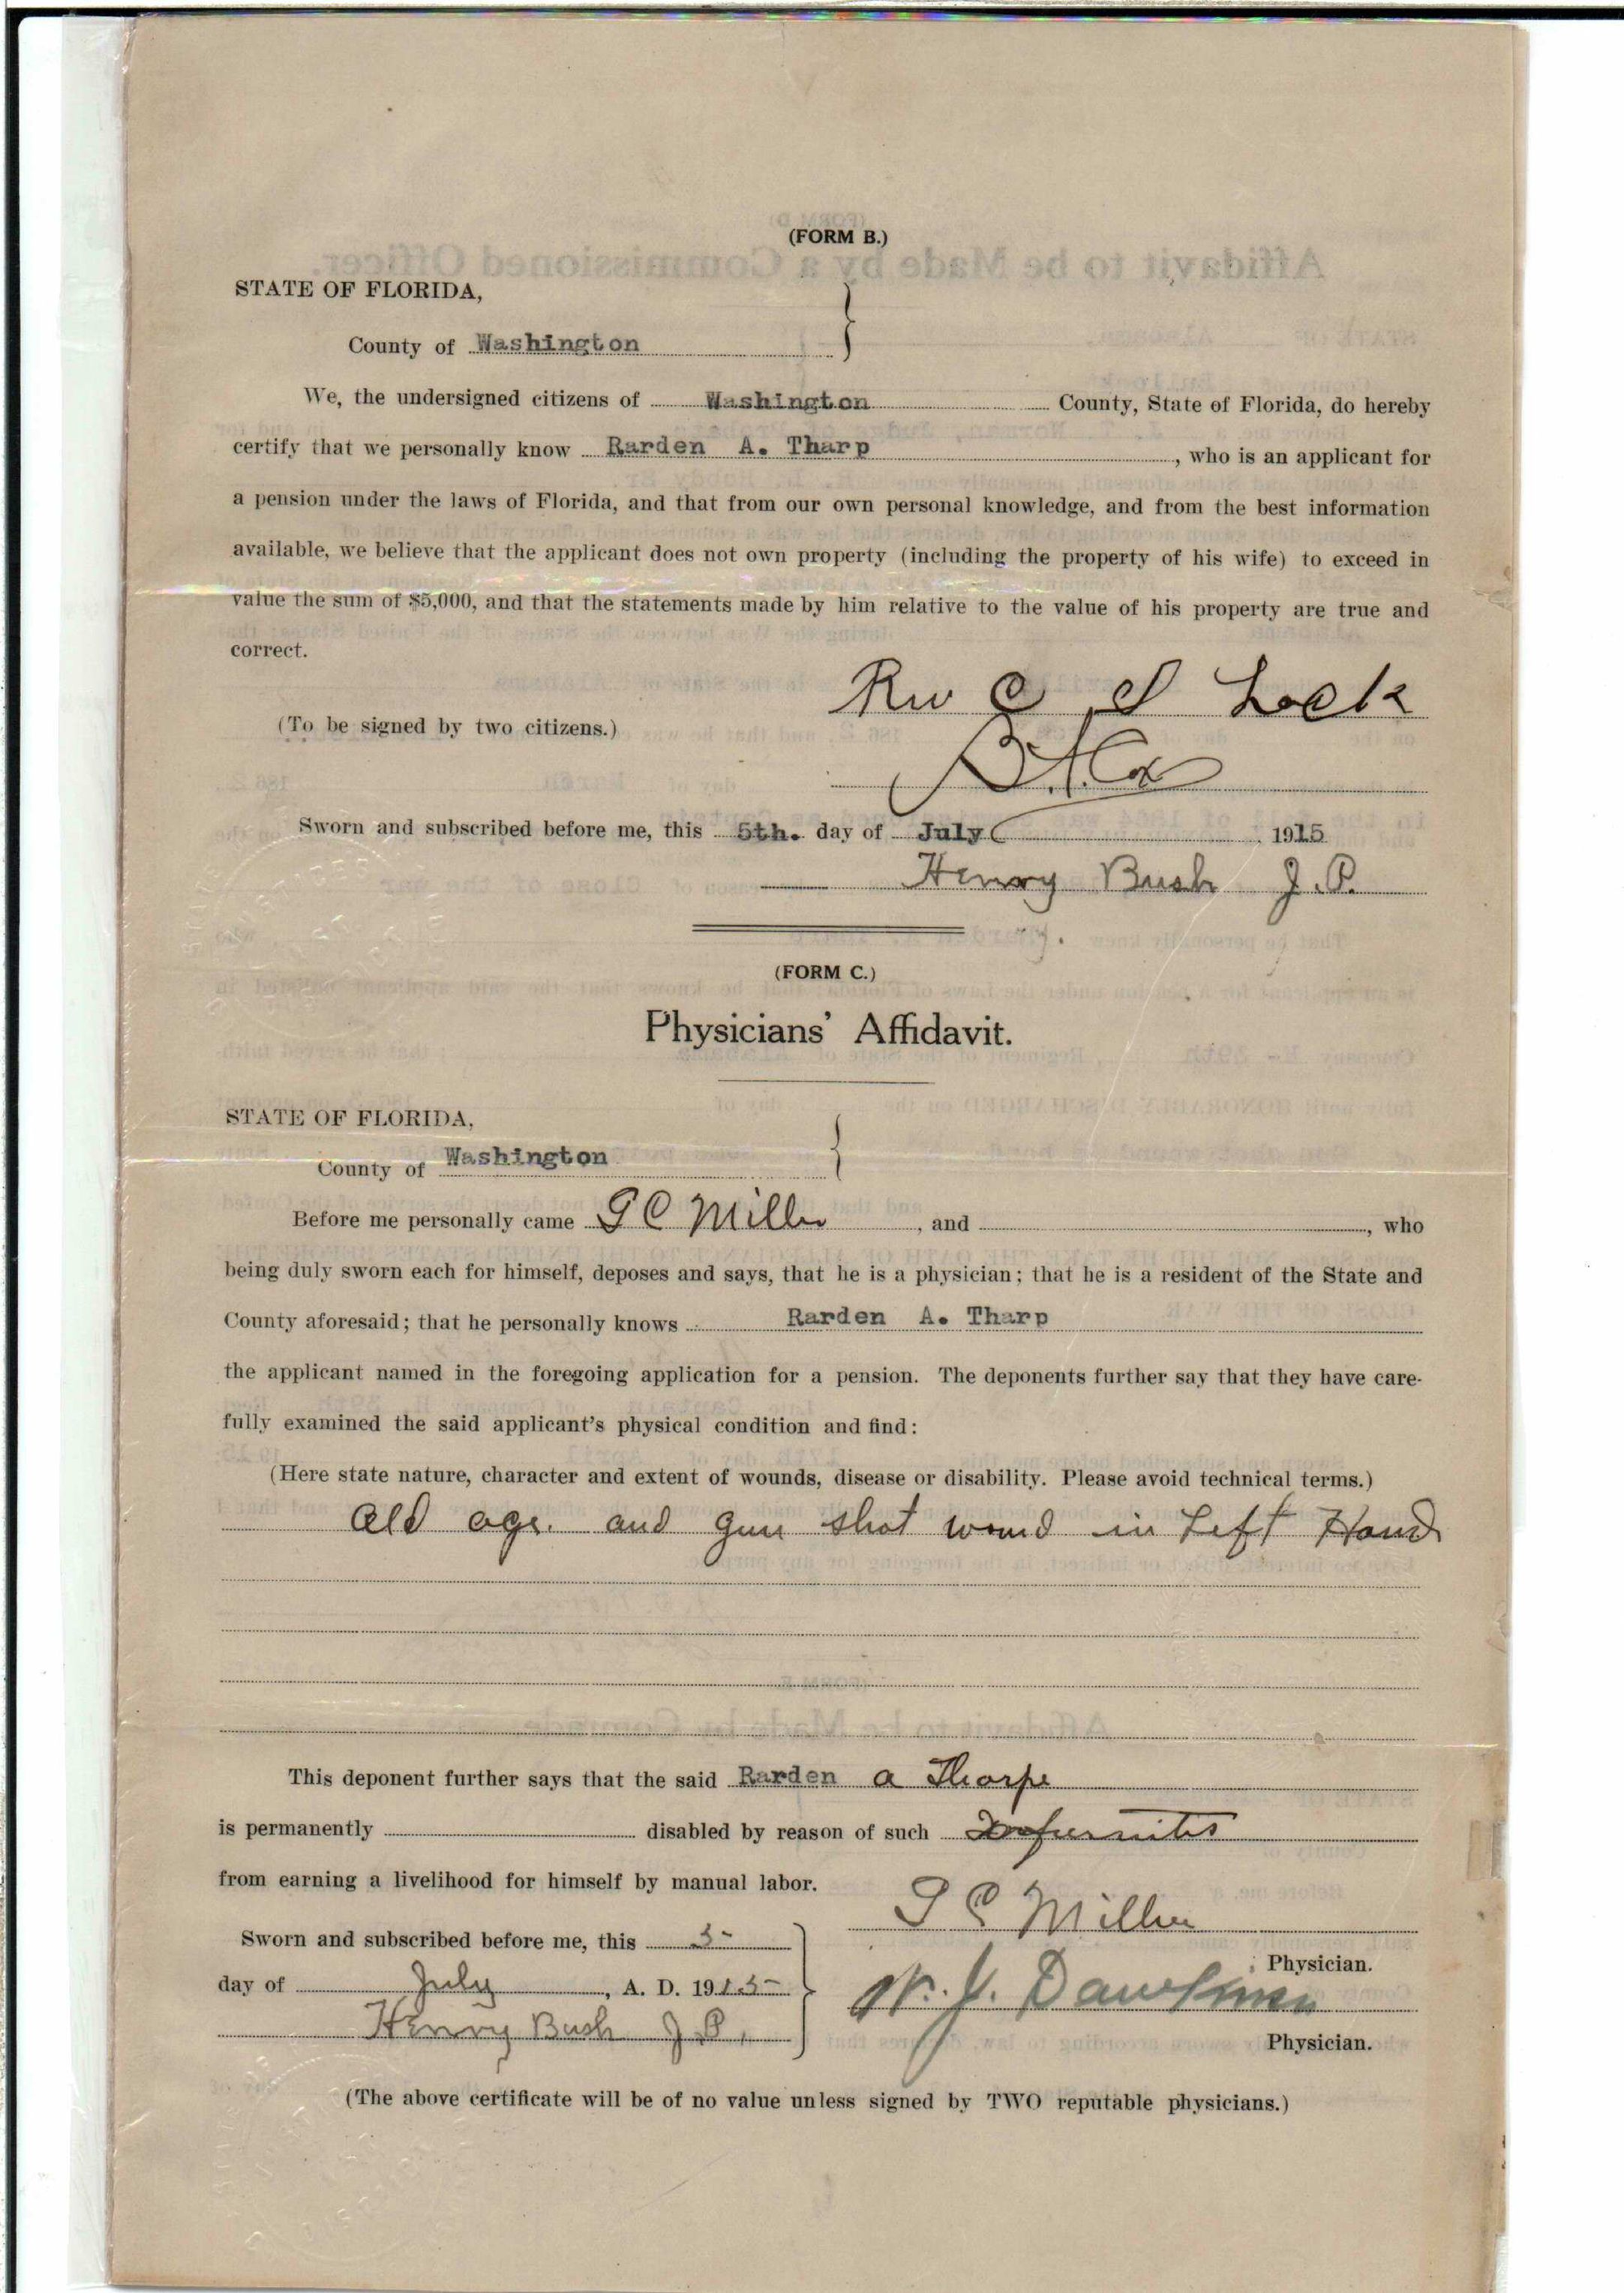 (FORM B.)
STATE OF FLORIDA,
County of Washington
We, the undersigned citizens of Washington County, State of Florida, do hereby
certify that we personally know Rarden A. Tharp, who is an applicant for
a pension under the laws of Florida, and that from our own personal knowledge, and from the best information
available, we believe that the applicant does not own property (including the property of his wife) to exceed in
value the sum of $5,000, and that the statements made by him relative to the value of his property are true and
correct.
C S Lock
(To be signed by two citizens.)
Cox
Sworn and subscribed before me, this 5th. day of July 1915
Henry Bush J.P.
(FORM C.)
Physicians' Affidavit.
STATE OF FLORIDA,
County of Washington
Before me personally came G C Miller, and , who
being duly sworn each for himself, deposes and says, that he is a physician; that he is a resident of the State and
County aforesaid; that he personally knows Rarden A. Tharp
the applicant named in the foregoing application for a pension. The deponents further say that they have care-
fully examined the said applicant's physical condition and find:
(Here state nature, character and extent of wounds, disease or disability. Please avoid technical terms.)
Old age. and gun shot wound in Left Hand
This deponent further says that the said Rarden a Tharpe
is permanently disabled by reason of such
from earning a livelihood for himself by manual labor.
G C Miller
Sworn and subscribed before me, this 5
Physician.
day of July, A. D. 1915
W. J. Dawkins
Henry Bush J.P.
Physician.
(The above certificate will be of no value unless signed by TWO reputable physicians.)